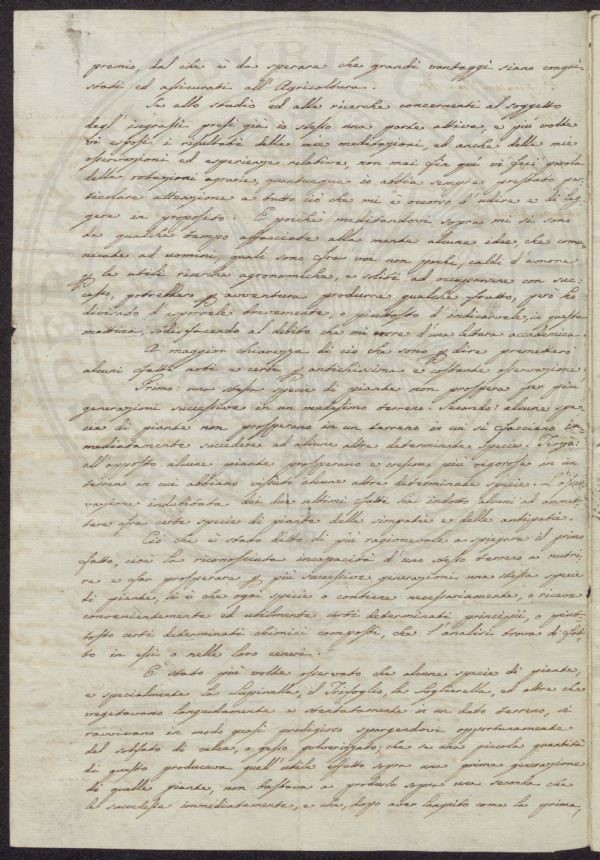 premio, dal che è da sperare che grandi vantaggi siano conqui
stati ed assicurati all'Agricoltura.
Se allo studio ed alle ricerche concernenti al soggetto
degl'ingrassi presi già io stesso una parte attiva, e più volte
vi esposi i resultati delle mie meditazioni, ed anche delle mie
osservazioni ed esperienze relative, non mai fin quì vi feci parola
delle rotazioni agrarie, quantunque io abbia sempre prestato par
ticolare attenzione a tutto ciò che mi è occorso d'udire e di leg
gere in proposito. E poichè meditandovi sopra mi si sono
da qualche tempo affacciate alla mente alcune idee, che comu
nicate ad uomini, quali sono fra voi non pochi, caldi d'amore
p le utili ricerche agronomiche, e soliti ad occuparsene con suc
cesso, potrebbero p avventura produrre qualche frutto, però ho
divisato d'esporvele brevemente, o piuttosto d'indicarvele in questa
mattina, sodisfacendo al debito che mi corre d'una lettura accademica.
A maggior chiarezza di ciò che sono p dire premetterò
alcuni fatti noti e certi p antichissima e costante osservazione.
Primo: una stessa specie di piante non prospera per più
generazioni successive in un medesimo terreno. Secondo: alcune spe
cie di piante non prosperano in un terreno in cui si facciano im
mediatamente succedere ad alcune altre determinate specie. Terzo:
all'opposto alcune piante prosperano e crescono più vigorose in un
terreno in cui abbiano vissuto alcune altre determinate specie. L'osser
vazione indubitata dei due ultimi fatti ha indotto alcuni ad ammet
tere fra certe specie di piante delle simpatie e delle antipatie.
Ciò che è stato detto di più ragionevole a spiegare il primo
fatto, cioè la riconosciuta incapacità d'uno stesso terreno a nutri
re e far prosperare p più successive generazioni una stessa specie
di piante, si è che ogni specie o contiene necessariamente, o riceve
convenientemente ed utilmente certi determinati principii, o piut
tosto certi determinati chimici composti, che l'analisi trova di fat
to in essi o nelle loro ceneri.
È stato più volte osservato che alcune specie di piante,
e specialmente la Lupinella, il Trifoglio, la Sogliarella, ed altre che
vegetavano languidamente e stentatamente in un dato terreno, si
ravvivano in modo quasi prodigioso spargendovi opportunamente
del solfato di calce, o gesso polverizzato; che se una piccola quantità
di questo produceva quell'utile effetto sopra una prima generazione
di quelle piante, non bastava a produrlo sopra una seconda che
le succedesse immediatamente, e che, dopo aver languito come la prima,